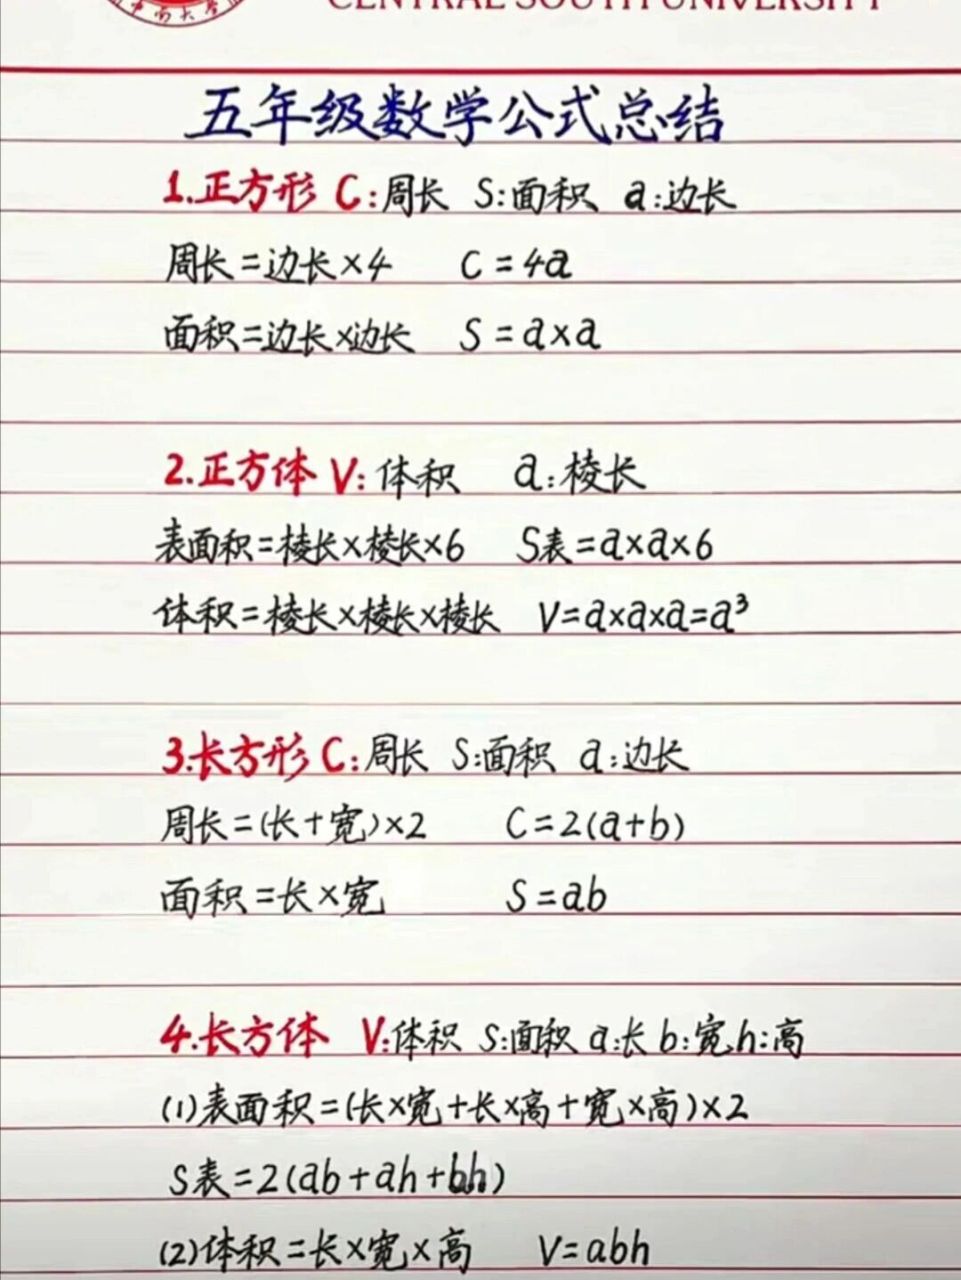 中南大学
CENTRAL SOUTH UNIVERSITY
五年级数学公式总结
1.正方形 C:周长 S:面积 a:边长
周长=边长×4 C=4a
面积=边长×边长 S=a×a
2.正方体 V:体积 a:棱长
表面积=棱长×棱长×6 S表=a×a×6
体积=棱长×棱长×棱长 V=a×a×a=a³
3.长方形 C:周长 S:面积 a:边长
周长=(长+宽)×2 C=2(a+b)
面积=长×宽 S=ab
4.长方体 V:体积 S:面积 a:长 b:宽 h:高
(1)表面积=(长×宽+长×高+宽×高)×2
S表=2(ab+ah+bh)
(2)体积=长×宽×高 V=abh